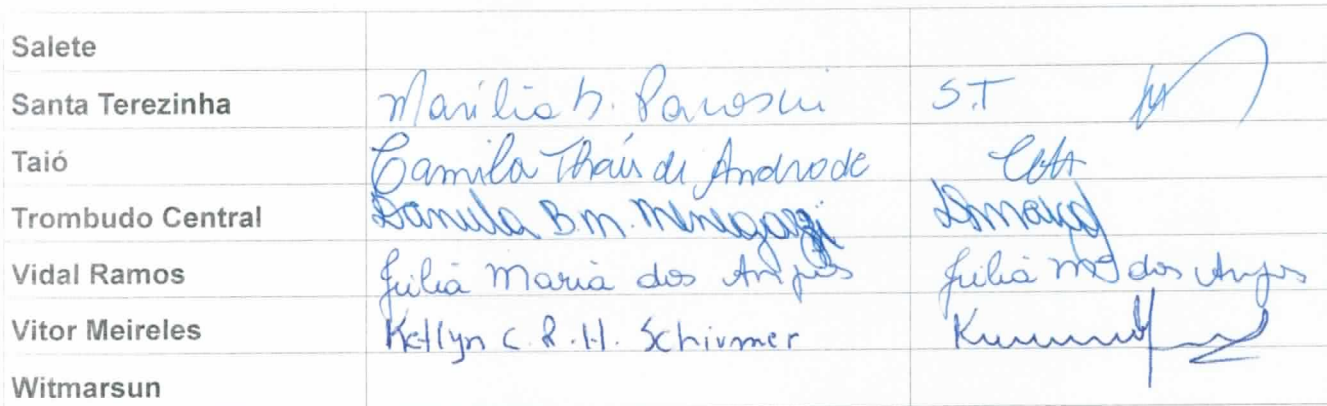 Salete
Santa Terezinha Marília h. Paroski S.T
Taió Camila Thaís de Andrade
Trombudo Central Daniela B.M. Menegazzi
Vidal Ramos Júlia Maria dos Anjos Júlia Mª dos Anjos
Vitor Meireles Kellyn C. R. H. Schirmer
Witmarsun